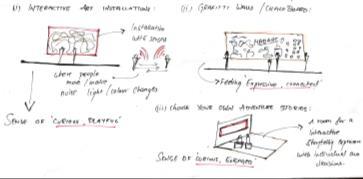 (i) INTERACTIVE ART INSTALLATIONS:
INSTALLATION
WITH SENSOR
where people
move / make
noise light / colour changes
SENSE OF 'CURIOUS, PLAYFUL'
(ii) GRAFFITI WALLS / CHALKBOARD:
Feeling 'Expressive, connected'
(iii) CHOOSE YOUR OWN ADVENTURE STORIES:
A room for a
interactive
storytelling experience
with individual own
decisions.
SENSE OF CURIOUS, ENGAGED'